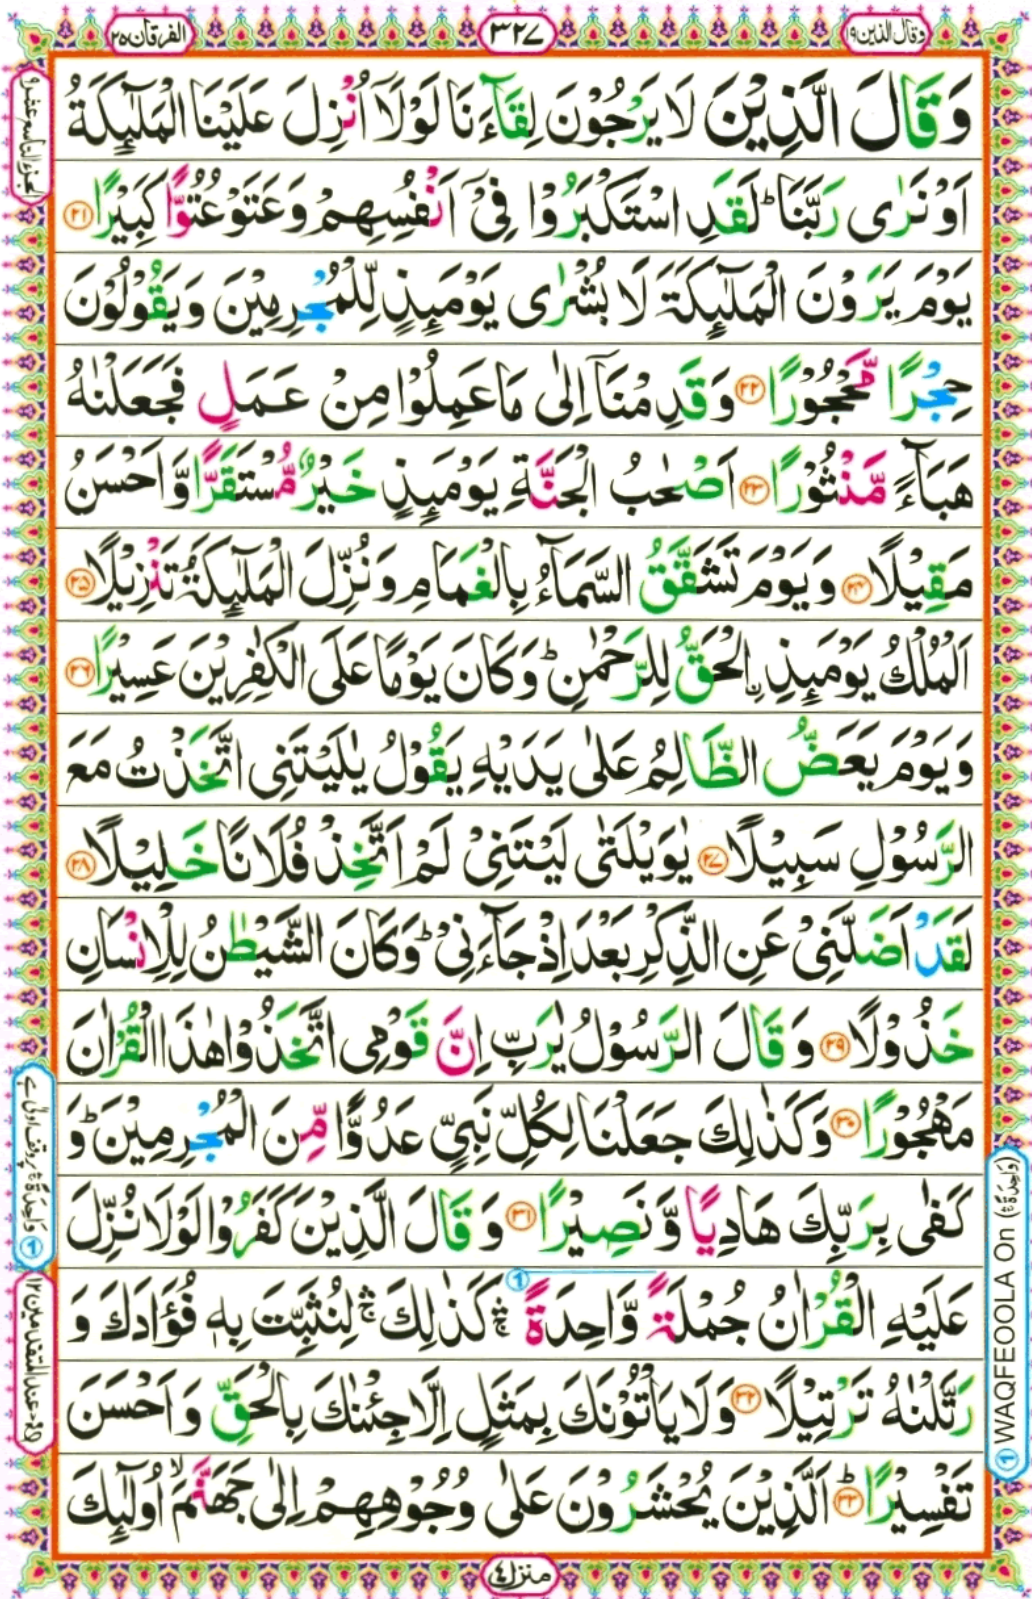 وقال الذين ١٩
٣٢٧
الفرقان ٢٥
وَقَالَ الَّذِيْنَ لَا يَرْجُوْنَ لِقَآءَنَا لَوْلَاۤ اُنْزِلَ عَلَيْنَا الْمَلٰٓئِكَةُ
اَوْ نَرٰى رَبَّنَا ؕ لَقَدِ اسْتَكْبَرُوْا فِىْۤ اَنْفُسِهِمْ وَعَتَوْ عُتُوًّا كَبِيْرًا ﴿۲۱﴾
يَوْمَ يَرَوْنَ الْمَلٰٓئِكَةَ لَا بُشْرٰى يَوْمَئِذٍ لِّلْمُجْرِمِيْنَ وَيَقُوْلُوْنَ
حِجْرًا مَّحْجُوْرًا ﴿۲۲﴾ وَقَدِمْنَاۤ اِلٰى مَا عَمِلُوْا مِنْ عَمَلٍ فَجَعَلْنٰهُ
هَبَآءً مَّنْثُوْرًا ﴿۲۳﴾ اَصْحٰبُ الْجَنَّةِ يَوْمَئِذٍ خَيْرٌ مُّسْتَقَرًّا وَّاَحْسَنُ
مَقِيْلًا ﴿۲۴﴾ وَيَوْمَ تَشَقَّقُ السَّمَآءُ بِالْغَمَامِ وَنُزِّلَ الْمَلٰٓئِكَةُ تَنْزِيْلًا ﴿۲۵﴾
اَلْمُلْكُ يَوْمَئِذِ ۨالْحَقُّ لِلرَّحْمٰنِ ؕ وَكَانَ يَوْمًا عَلَى الْكٰفِرِيْنَ عَسِيْرًا ﴿۲۶﴾
وَيَوْمَ يَعَضُّ الظَّالِمُ عَلٰى يَدَيْهِ يَقُوْلُ يٰلَيْتَنِى اتَّخَذْتُ مَعَ
الرَّسُوْلِ سَبِيْلًا ﴿۲۷﴾ يٰوَيْلَتٰى لَيْتَنِىْ لَمْ اَتَّخِذْ فُلَانًا خَلِيْلًا ﴿۲۸﴾
لَقَدْ اَضَلَّنِىْ عَنِ الذِّكْرِ بَعْدَ اِذْ جَآءَنِىْ ؕ وَكَانَ الشَّيْطٰنُ لِلْاِنْسَانِ
خَذُوْلًا ﴿۲۹﴾ وَقَالَ الرَّسُوْلُ يٰرَبِّ اِنَّ قَوْمِى اتَّخَذُوْا هٰذَا الْقُرْاٰنَ
مَهْجُوْرًا ﴿۳۰﴾ وَكَذٰلِكَ جَعَلْنَا لِكُلِّ نَبِىٍّ عَدُوًّا مِّنَ الْمُجْرِمِيْنَ ؕ وَ
كَفٰى بِرَبِّكَ هَادِيًا وَّنَصِيْرًا ﴿۳۱﴾ وَقَالَ الَّذِيْنَ كَفَرُوْا لَوْلَا نُزِّلَ
عَلَيْهِ الْقُرْاٰنُ جُمْلَةً وَّاحِدَةً ۛۚ كَذٰلِكَ ۛۚ لِنُثَبِّتَ بِهٖ فُؤَادَكَ وَ
رَتَّلْنٰهُ تَرْتِيْلًا ﴿۳۲﴾ وَلَا يَاْتُوْنَكَ بِمَثَلٍ اِلَّا جِئْنٰكَ بِالْحَقِّ وَاَحْسَنَ
تَفْسِيْرًا ؕ﴿۳۳﴾ اَلَّذِيْنَ يُحْشَرُوْنَ عَلٰى وُجُوْهِهِمْ اِلٰى جَهَنَّمَ ۙ اُولٰٓئِكَ
منزل ٤
الجزء التاسع عشر
① WAQFEOOLA On (وَاحِدَةً)